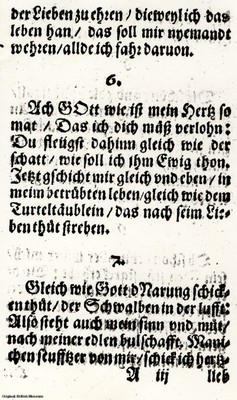 der Lieben zu ehren / dieweyl ich das
leben han / das soll mir nyemandt
wehren / allde ich fahr daruon.
6.
Ach GOtt wie ist mein Hertz so
mat / Das ich dich müß verlohn:
Du fleugst dahinn gleich wie der
schatt / wie soll ich jhm Ewig thon.
Jetzt gschicht mir gleich vnd eben / in
meim betrübten leben / gleich wie dem
Turteltäublein / das nach seim Lie-
ben thüt streben.
7.
Gleich wie Gott d Narung schick-
en thüt / der Schwalben in der lufft:
Also steht auch mein sinn vnd müt /
nach meiner edlen bulschafft, Mani-
chen seufftzer von mir / schick ich hertz-
A iij lieb
Original: British Museum